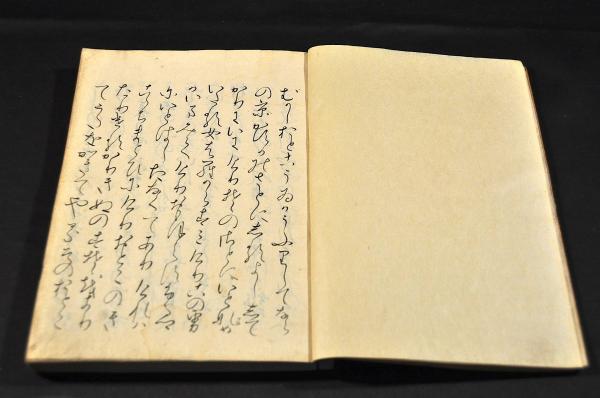 むかしおとこうゐかうふりしてなら
の京かすかのさとにしるよしして
かりにいにけりそのさとにいとなまめ
いたる女はらからすみけりこの男
かいまみてけりおもほえすふるさと
にいとはしたなくてありけれは
こゝちまとひにけりおとこのき
たりけるかりきぬのすそをきり
てうたをかきてやるそのおとこ